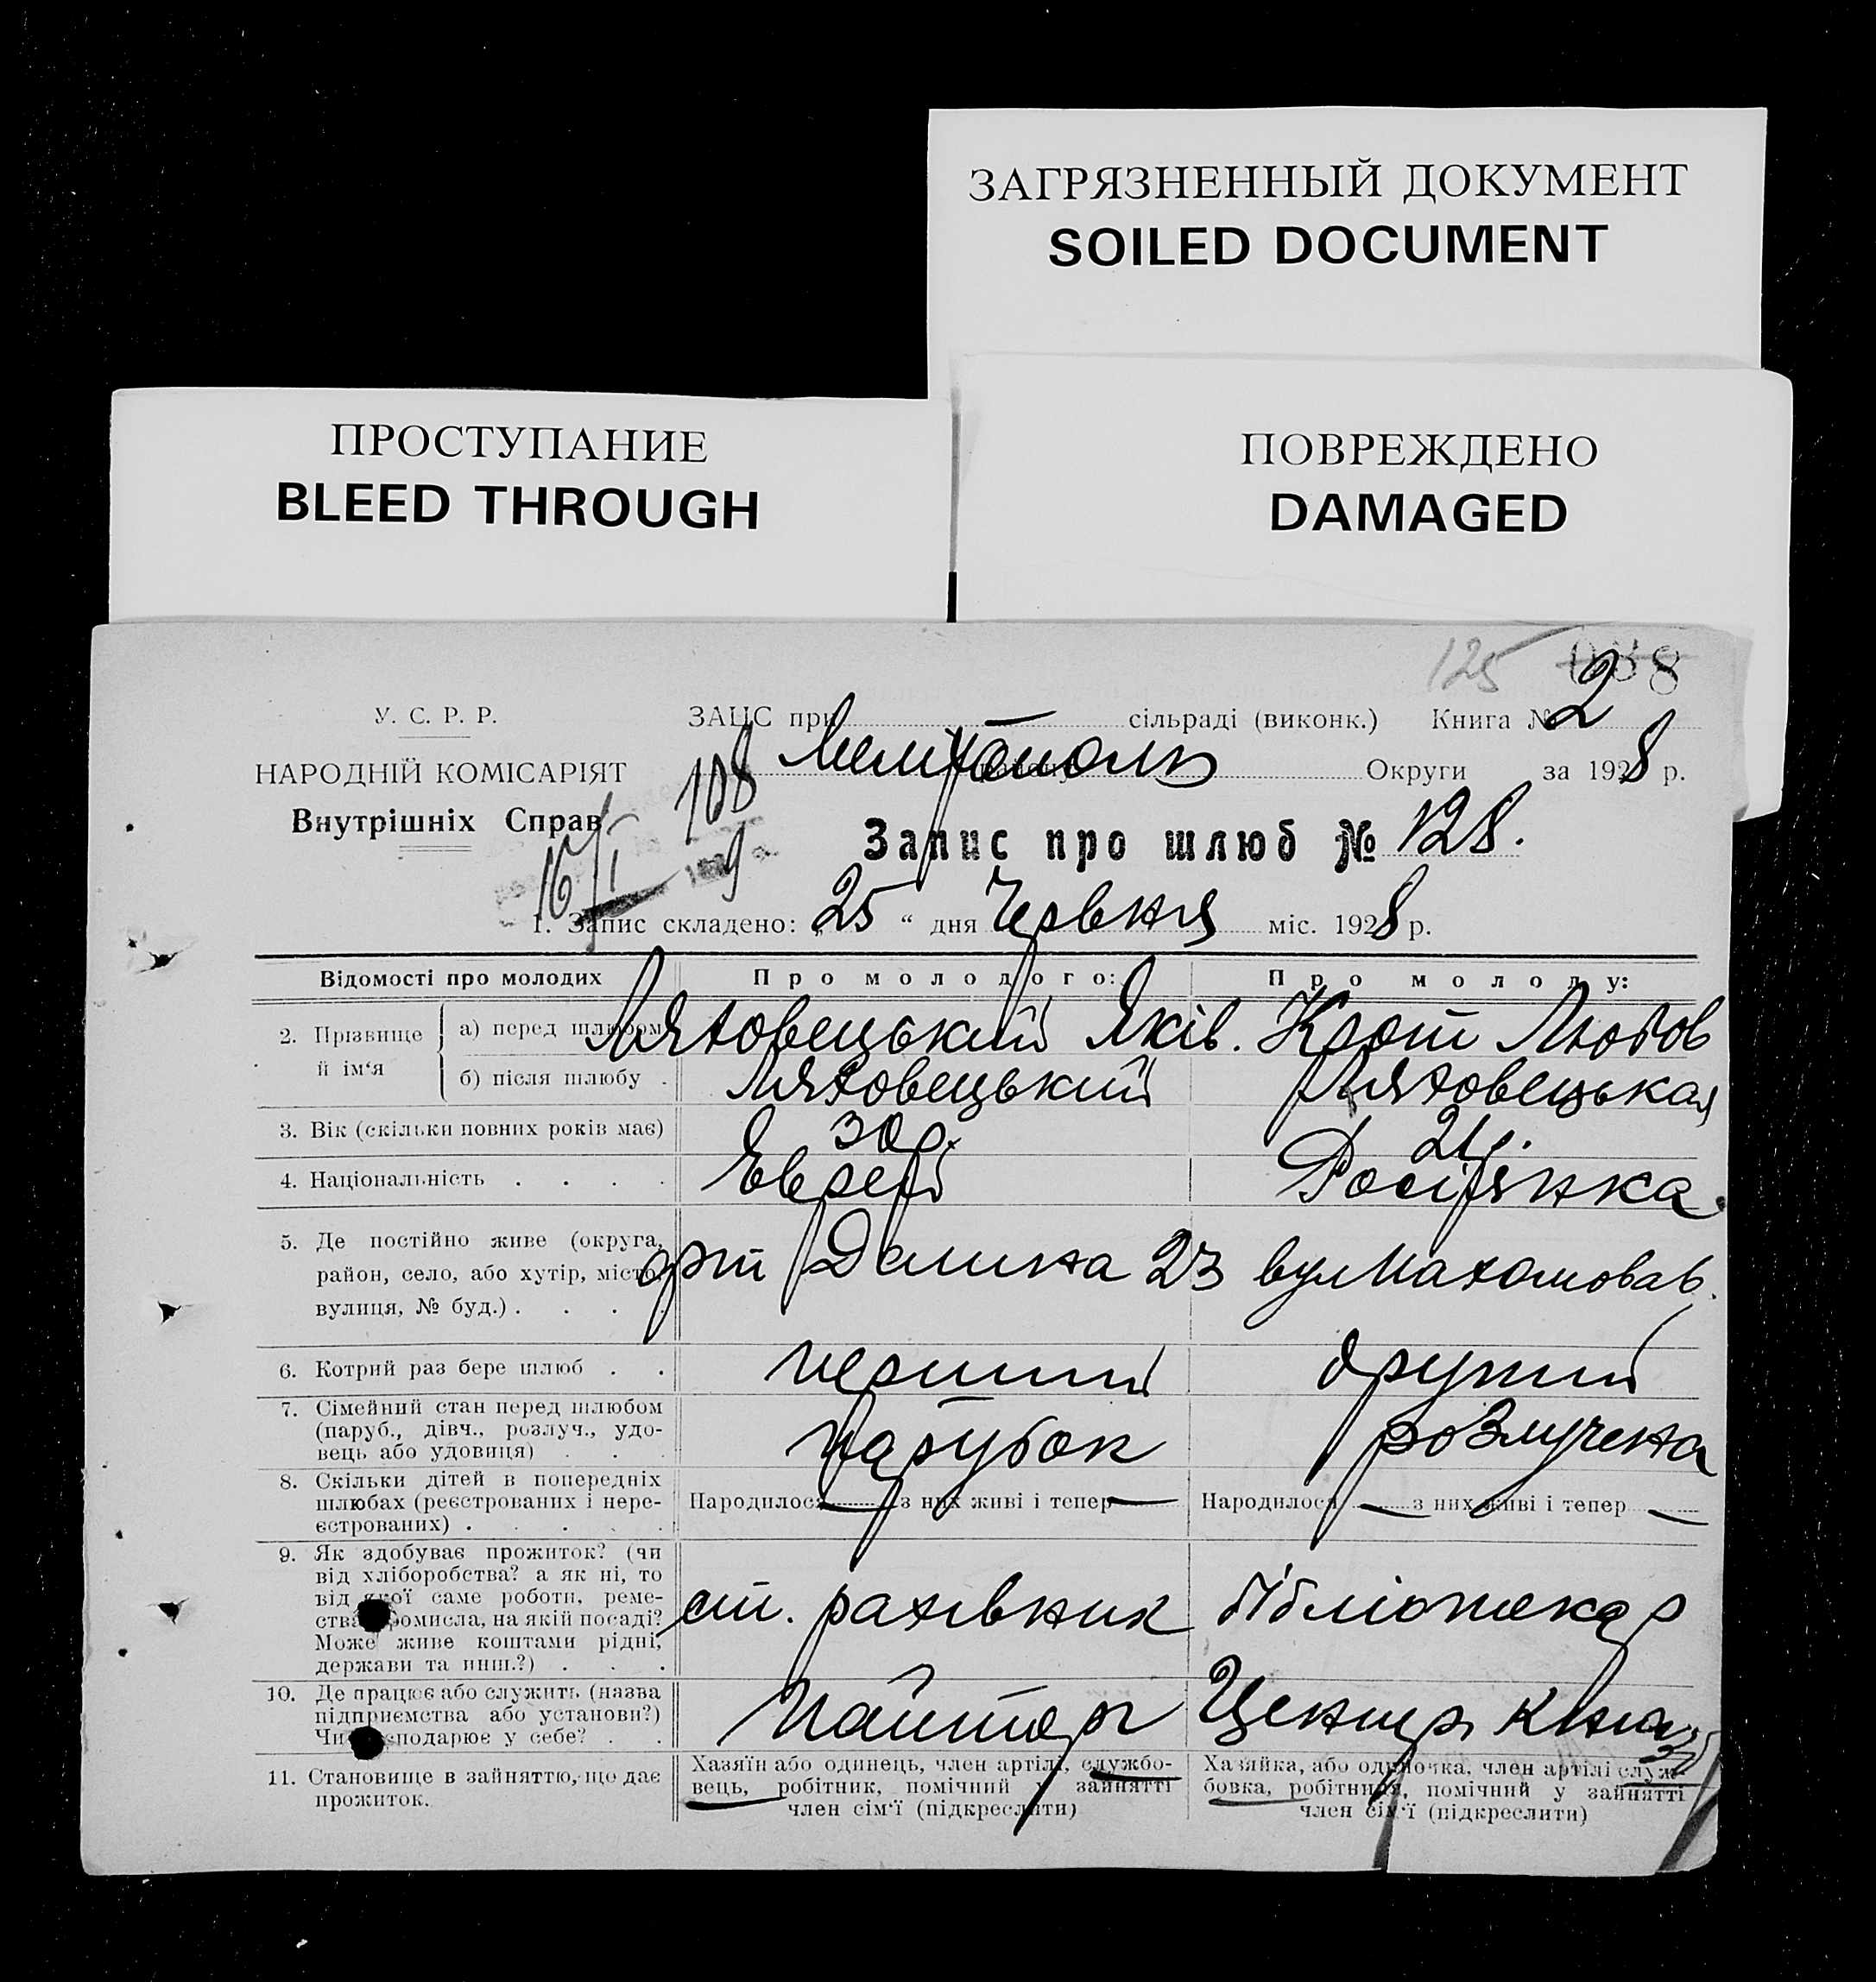 ЗАГРЯЗНЕННЫЙ ДОКУМЕНТ
SOILED DOCUMENT
ПРОСТУПАНИЕ
BLEED THROUGH
ПОВРЕЖДЕНО
DAMAGED
125
У. С. Р. Р.
НАРОДНІЙ КОМІСАРІЯТ
Внутрішніх Справ
ЗАЦС при — сільраді (виконк.) Книга № 2
108 Мелітополь Округи за 1928 р.
Запис про шлюб № 128.
1. Запис складено: „25“ дня Червня міс. 1928 р.
Відомості про молодих Про молодого: Про молоду:
2. Прізвище й ім‘я
а) перед шлюбом Ляховецький Яків. Крот Любов
б) після шлюбу . Ляховецький Ляховецькая
3. Вік (скільки повних років має) 30 р. 21 р.
4. Національність . . . . Еврей Росіянка
5. Де постійно живе (округа,
район, село, або хутір, місто,
вулиця, № буд.) . . . . 23 вул
6. Котрий раз бере шлюб . . перший другий
7. Сімейний стан перед шлюбом
(паруб., дівч., розлуч., удо-
вець або удовиця) . . . парубок розлучена
8. Скільки дітей в попередніх
шлюбах (реєстрованих і нере-
єстрованих) . . . . .
Народилося — з них живі і тепер — Народилося — з них живі і тепер —
9. Як здобуває прожиток? (чи
від хліборобства? а як ні, то
від якої саме роботи, реме-
ства, промисла, на якій посаді?
Може живе коштами рідні,
держави та инш.?) . . .
ст. рахівник бібліотекар
10. Де працює або служить (назва
підприємства або установи?)
Чи господарює у себе? . .
Пайторг Центр
11. Становище в зайняттю, що дає
прожиток.
Хазяїн або одинець, член артілі, службо-
вець, робітник, помічний у зайнятті
член сім‘ї (підкреслити)
Хазяйка, або одиночка, член артілі служ-
бовка, робітниця, помічний у зайнятті
член сім‘ї (підкреслити)